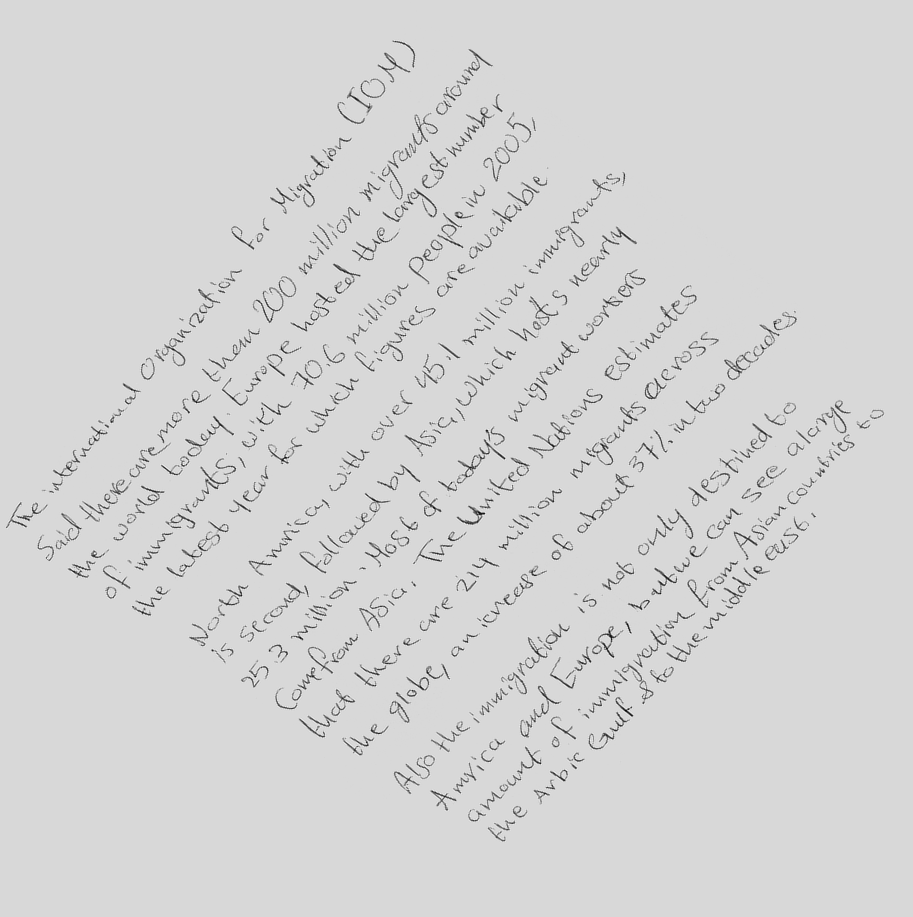 The international Organization for Migration (IOM)
Said there are more them 200 million migrants around
the world today. Europe hosted the largest number
of immigrants, with 70.6 million people in 2005,
the latest year for which figures are available.
North Amrica, with over 45.1 million immigrants,
is second, followed by Asia, which hosts nearly
25.3 million. Most of today's migrant workers
Come from Asia. The United Nations estimates
that there are 214 million migrants across
the globe, an icrease of about 37% in two decades.
Also the immigration is not only destined to
Amrica and Europe, but we can see a large
amount of immigration from Asian countries to
the Arbic Gulf & to the middle east.